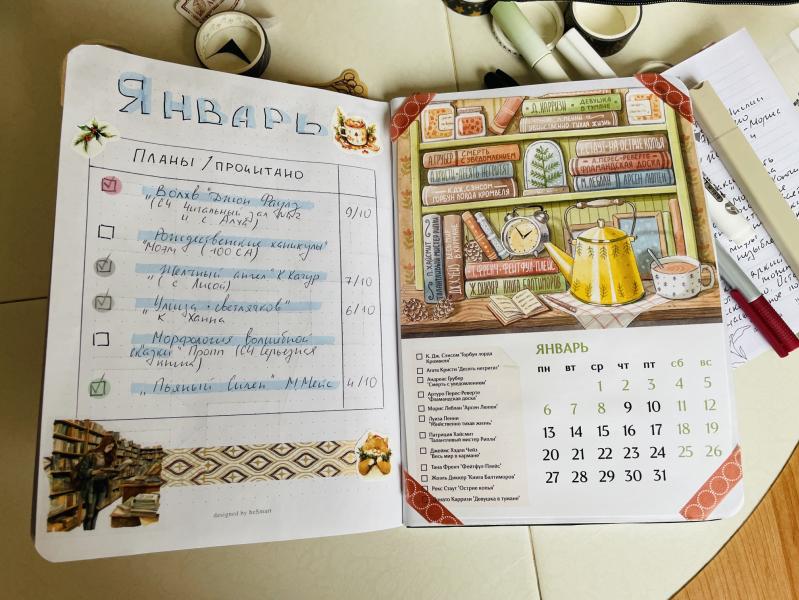 Январь
Планы / прочитано
Волхв" Джон Фаулз
(СЧ читальный зал №2
и с Алуа)
9/10
„Рождественские каникулы"
Моэм (100 СА)
„Желчный ангел" К Кацур
(с Лисой)
7/10
„Улица светлячков"
К Ханна
6/10
Морфология волшебной
сказки" Пропп (СЧ Серьезная
книга)
„Пьяный Силен" М. Мейс
4/10
designed by beSmart
Д. КАРРИЗИ ДЕВУШКА
В ТУМАНЕ
Л. ПЕННИ
УБИЙСТВЕННО ТИХАЯ ЖИЗНЬ
А. ГРУБЕР СМЕРТЬ
С УВЕДОМЛЕНИЕМ
А. КРИСТИ ДЕСЯТЬ НЕГРИТЯТ
К. ДЖ. СЭНСОМ
ГОРБУН ЛОРДА КРОМВЕЛЯ
Р. СТАУТ ОСТРИЕ КОПЬЯ
А. ПЕРЕС-РЕВЕРТЕ
ФЛАМАНДСКАЯ ДОСКА
М. ЛЕБЛАН АРСЕН ЛЮПЕН
П. ХАЙСМИТ
ТАЛАНТЛИВЫЙ МИСТЕР РИПЛИ
ВЕСЬ МИР
В КАРМАНЕ
Т. ФРЕНЧ ФЕЙТФУЛ-ПЛЕЙС
Ж. ДИККЕР КНИГА БАЛТИМОРОВ
К. Дж. Сэнсом "Горбун лорда
Кромвеля"
Агата Кристи "Десять негритят"
Андреас Грубер
"Смерть с уведомлением"
Артуро Перес-Реверте
"Фламандская доска"
Морис Леблан "Арсен Люпен"
Луиза Пенни
"Убийственно тихая жизнь"
Патриция Хайсмит
"Талантливый мистер Рипли"
Джеймс Хэдли Чейз
"Весь мир в кармане"
Тана Френч "Фейтфул-Плейс"
Жоэль Диккер "Книга Балтиморов"
Рекс Стаут "Острие копья"
Донато Карризи "Девушка в тумане"
ЯНВАРЬ
ПН ВТ СР ЧТ ПТ СБ ВС
1 2 3 4 5
6 7 8 9 10 11 12
13 14 15 16 17 18 19
20 21 22 23 24 25 26
27 28 29 30 31